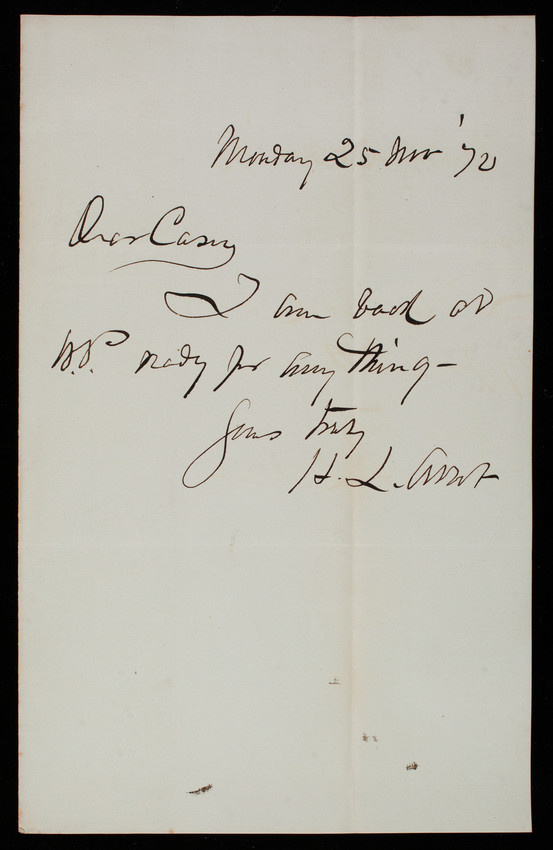 Monday 25 Nov '72
Dear Casey
I am back at
W.P. ready for anything -
Yours truly
H. L. Abbot